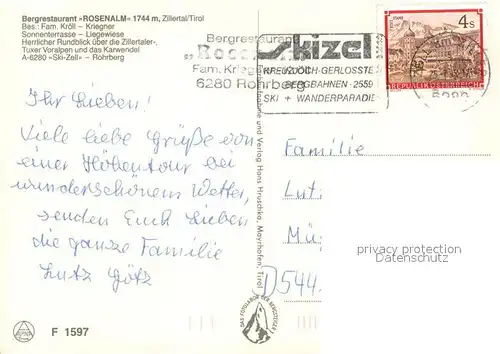 Bergrestaurant »ROSENALM« 1744 m, Zillertal/Tirol
Bes.: Fam. Kröll – Kriegner
Sonnenterrasse – Liegewiese
Herrlicher Rundblick über die Zillertaler-,
Tuxer Voralpen und das Karwendel
A-6280 »Ski-Zell« – Rohrberg
Bergrestaurant
Fam. Kriegner
6280 Rohrberg
skizell
KREUZJOCH-GERLOSSTE
BERGBAHNEN · 2559
SKI + WANDERPARADIE
4 s
REPUBLIK ÖSTERREICH
Ihr Lieben!
Viele liebe Grüße von
einer Höhentour bei
wunderschönem Wetter,
senden Euch Lieben
die ganze Familie
Lutz Götz
Familie
Lut
Mü
D 544
privacy protection
Datenschutz
Verlag Hans Hruschka, Mayrhofen, Tirol
DAS FOTOHAUS DER BERGSTEIGER
F 1597